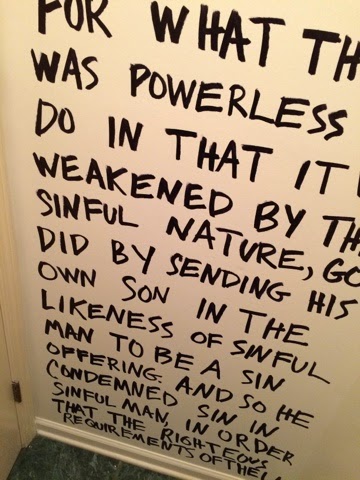 FOR WHAT TH
WAS POWERLESS
DO IN THAT IT
WEAKENED BY TH
SINFUL NATURE, GO
DID BY SENDING HIS
OWN SON IN THE
LIKENESS OF SINFUL
MAN TO BE A SIN
OFFERING. AND SO HE
CONDEMNED SIN IN
SINFUL MAN, IN ORDER
THAT THE RIGHTEOUS
REQUIREMENTS OF THE